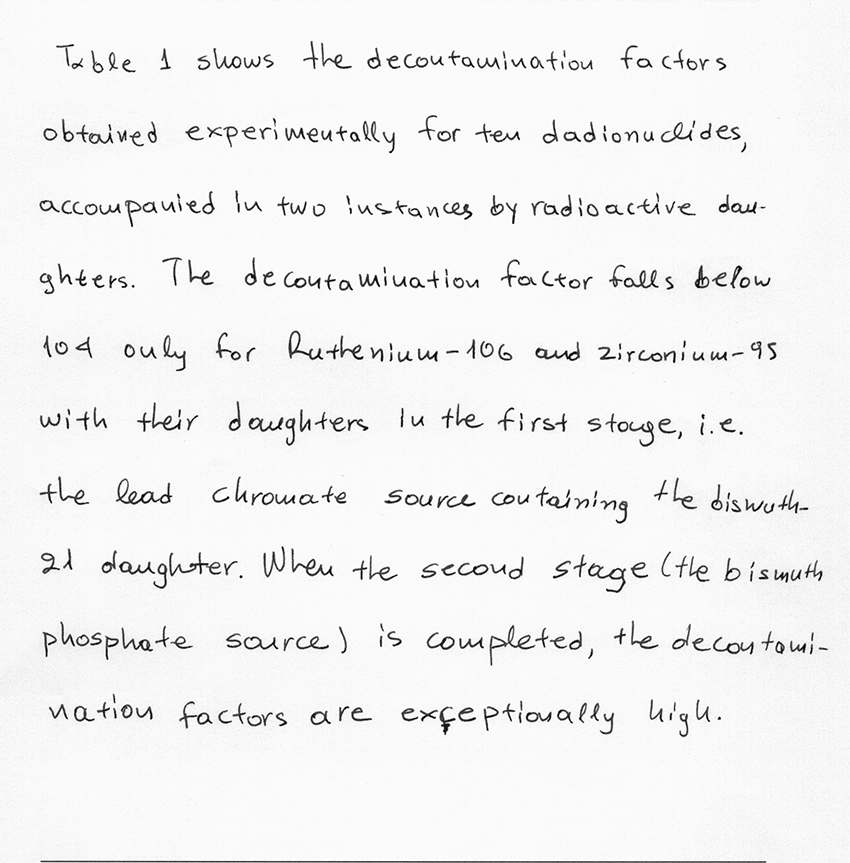 Table 1 shows the decontamination factors
obtained experimentally for ten dadionuclides,
accompanied in two instances by radioactive dau-
ghters. The decontamination factor falls below
104 only for Ruthenium-106 and zirconium-95
with their daughters in the first stage, i.e.
the lead chromate source containing the bismuth-
21 daughter. When the second stage (the bismuth
phosphate source) is completed, the decontami-
nation factors are exceptionally high.